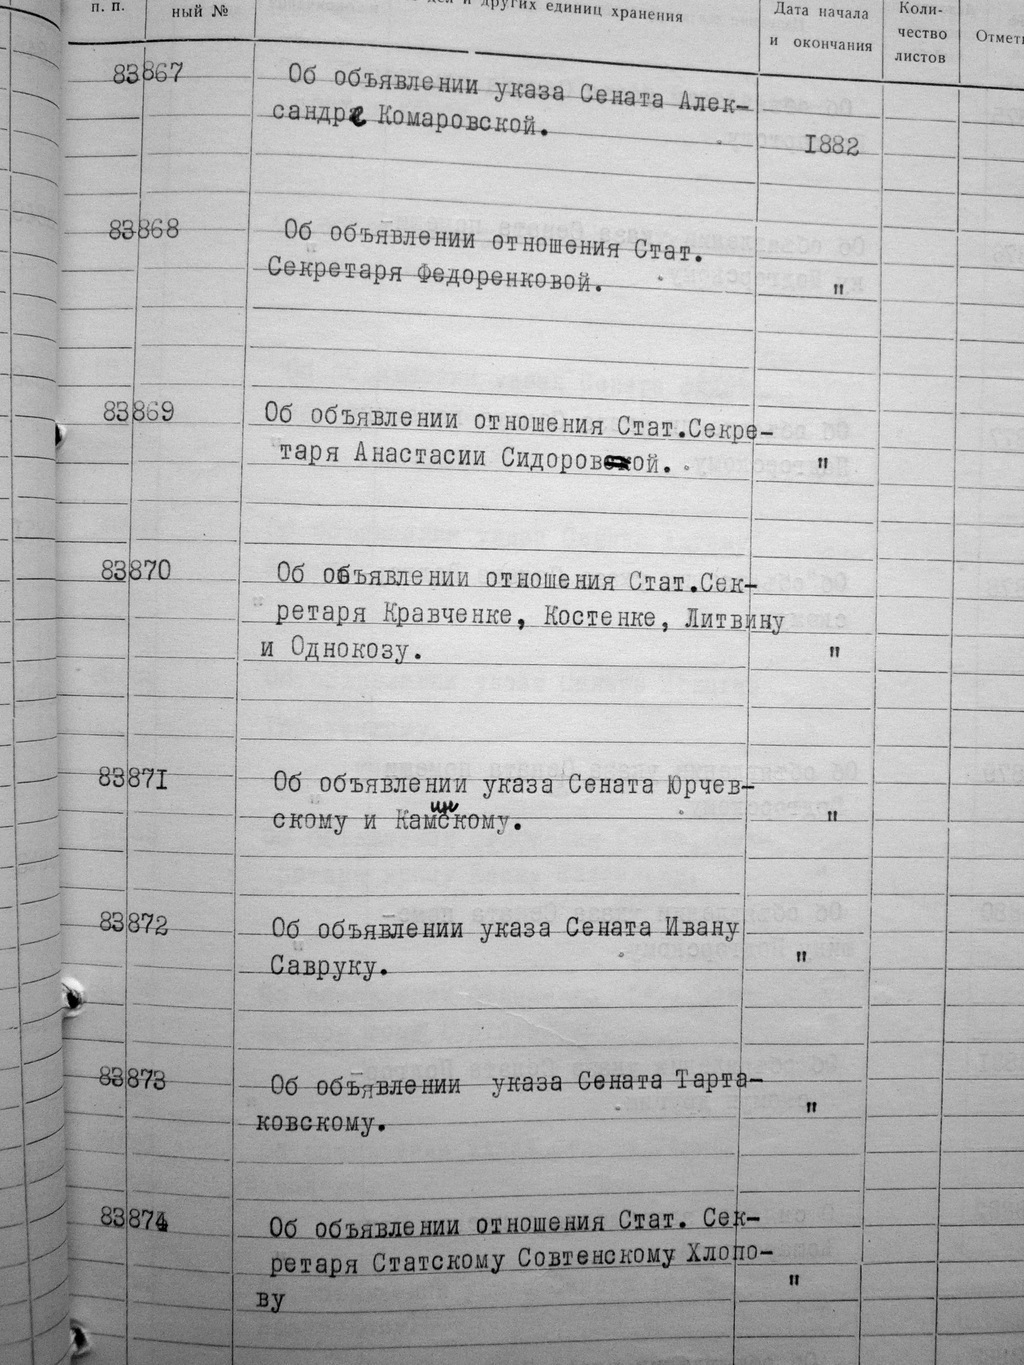 п. п.
ный №
и других единиц хранения
Дата начала
и окончания
Коли-
чество
листов
83867
Об объявлении указа Сената Алек-
сандре Комаровской.
1882
83868
Об объявлении отношения Стат.
Секретаря Федоренковой.
"
83869
Об объявлении отношения Стат.Секре-
таря Анастасии Сидоровой.
"
83870
Об объявлении отношения Стат.Сек-
ретаря Кравченке, Костенке, Литвину
и Однокозу.
"
83871
Об объявлении указа Сената Юрчев-
скому и Камщискому.
"
83872
Об объявлении указа Сената Ивану
Савруку.
"
83873
Об объявлении указа Сената Тарта-
ковскому.
"
83874
Об объявлении отношения Стат. Сек-
ретаря Статскому Совтенскому Хлопо-
ву
"